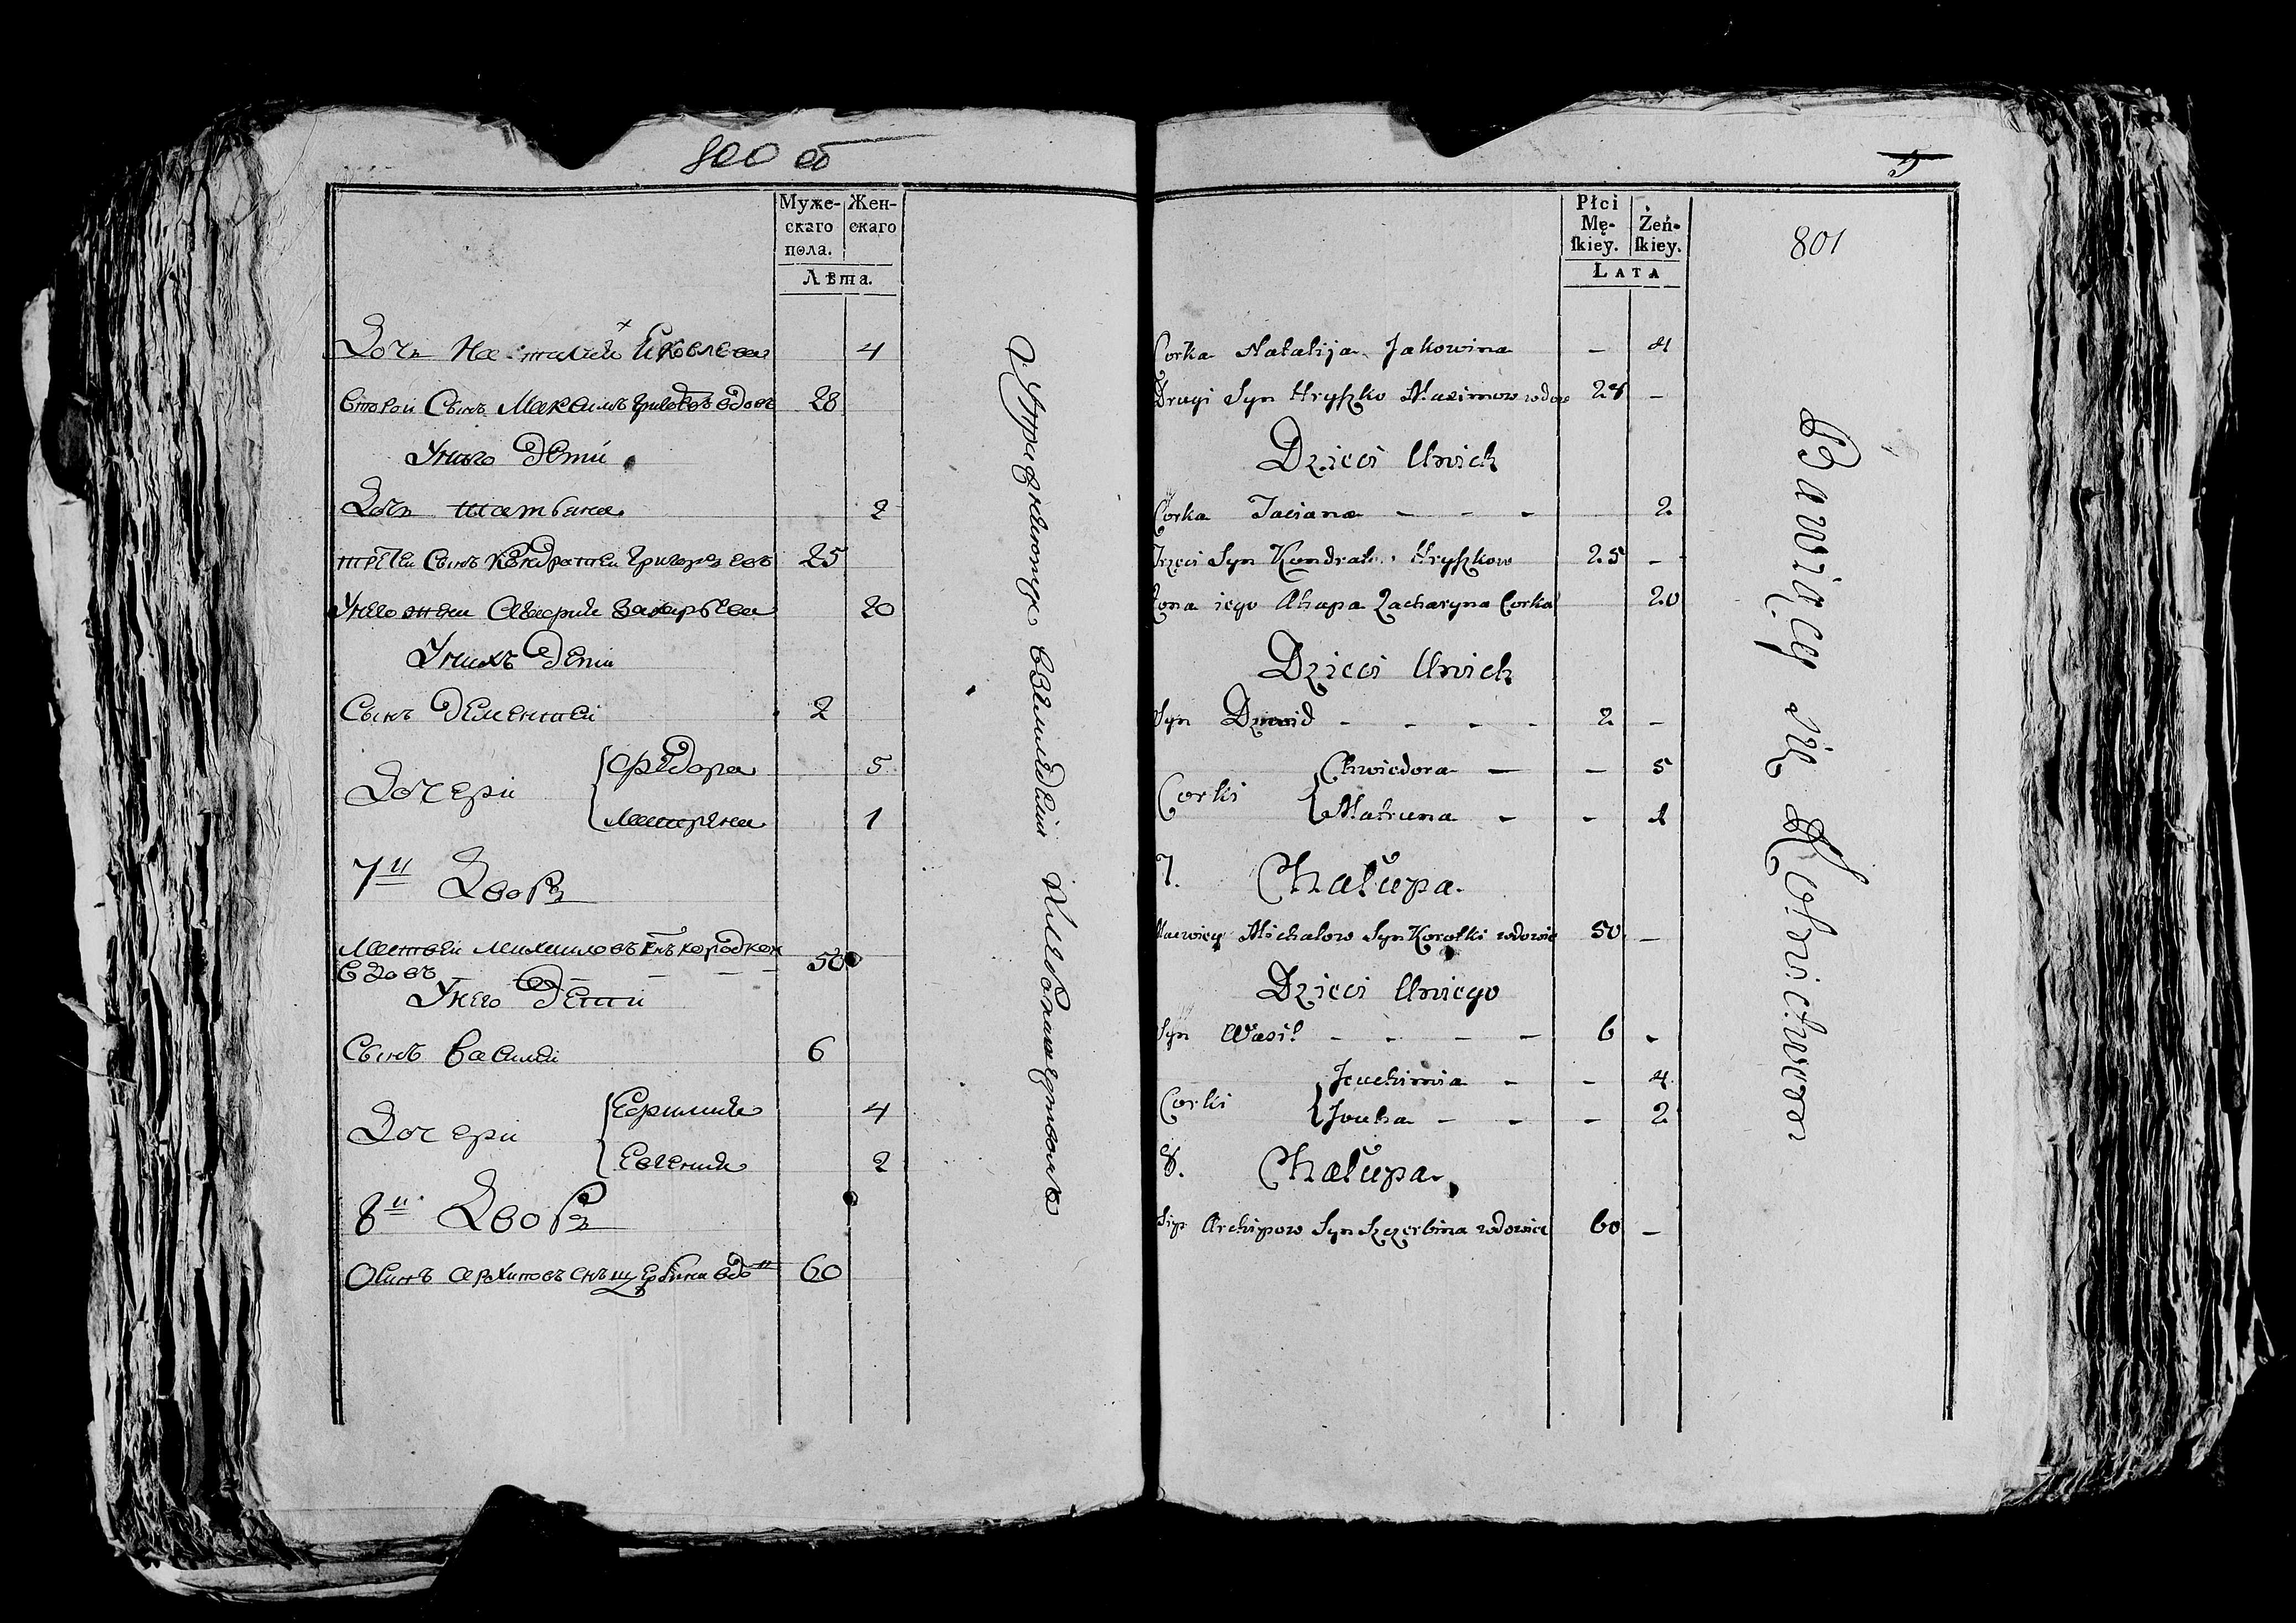 800 об
Муже-
скаго
пола.
Жен-
скаго
Лѣта.
Дочь Наталия Яковлева 4
Второй Сынъ Максимъ вдовъ 28
У него дети
Дочь татьяна 2
третей Сынъ Кондратей Григорьевъ 25
У него жена Захарьева 20
У нихъ дети
Сынъ дементей 2
Дочери
Федора 5
Матрена 1
7й Дворъ
Матвей михаиловъ снъ короткой
вдовъ 50
У него дети
Сынъ василей 6
Дочери
Ефимия 4
Евгения 2
8й Дворъ
Осипъ архиповъ снъ щербина вдо 60
Упражняются в земледелии и хлебопашестволъ
5
801
Płci
Mę-
ſkiey.
Żeń-
ſkiey.
LATA
Corka Natalija Jakowina - 4
Drugi Syn Hryszko Maximow wdow 28 -
Dzieci Unich
Corka Taciana - - - 2
Trzeci Syn Kondrat Hryszkow 25 -
Zona iego Ahapa Zacharyna Corka 20
Dzieci Unich
Syn - - - - 2 -
Corki
Chwiedora - - 5
Matruna - - 1
7. Chałupa.
Macwiey Michałow Syn Korotki wdowiec 50 -
Dzieci Uniego
Syn Wasil - - - - 6 -
Corki
Jeuchimia - - 4
Jouha - - - 2
8. Chałupa.
Archipow Syn Szczerbina wdowiec 60 -
Bawiący się Rolnictwem